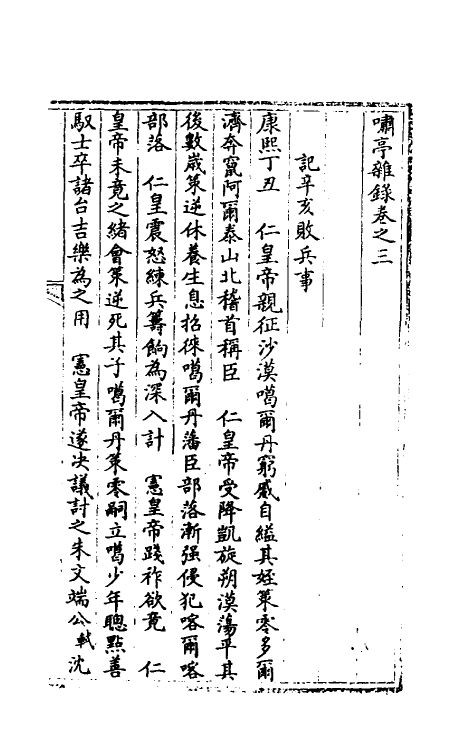 嘯亭雜錄卷之三
記辛亥敗兵事
康熙丁丑 仁皇帝親征沙漠噶爾丹窮蹙自縊其姪策零多爾
濟奔竄阿爾泰山北稽首稱臣 仁皇帝受降凱旋朔漠蕩平其
後數歲策逆休養生息招徠噶爾丹藩臣部落漸强侵犯喀爾喀
部落 仁皇震怒練兵籌餉為深入計 憲皇帝踐祚欲竟 仁
皇帝未竟之緒會策逆死其子噶爾丹策零嗣立噶少年聰黠善
馭士卒諸台吉樂為之用 憲皇帝遂決議討之朱文端公軾沈